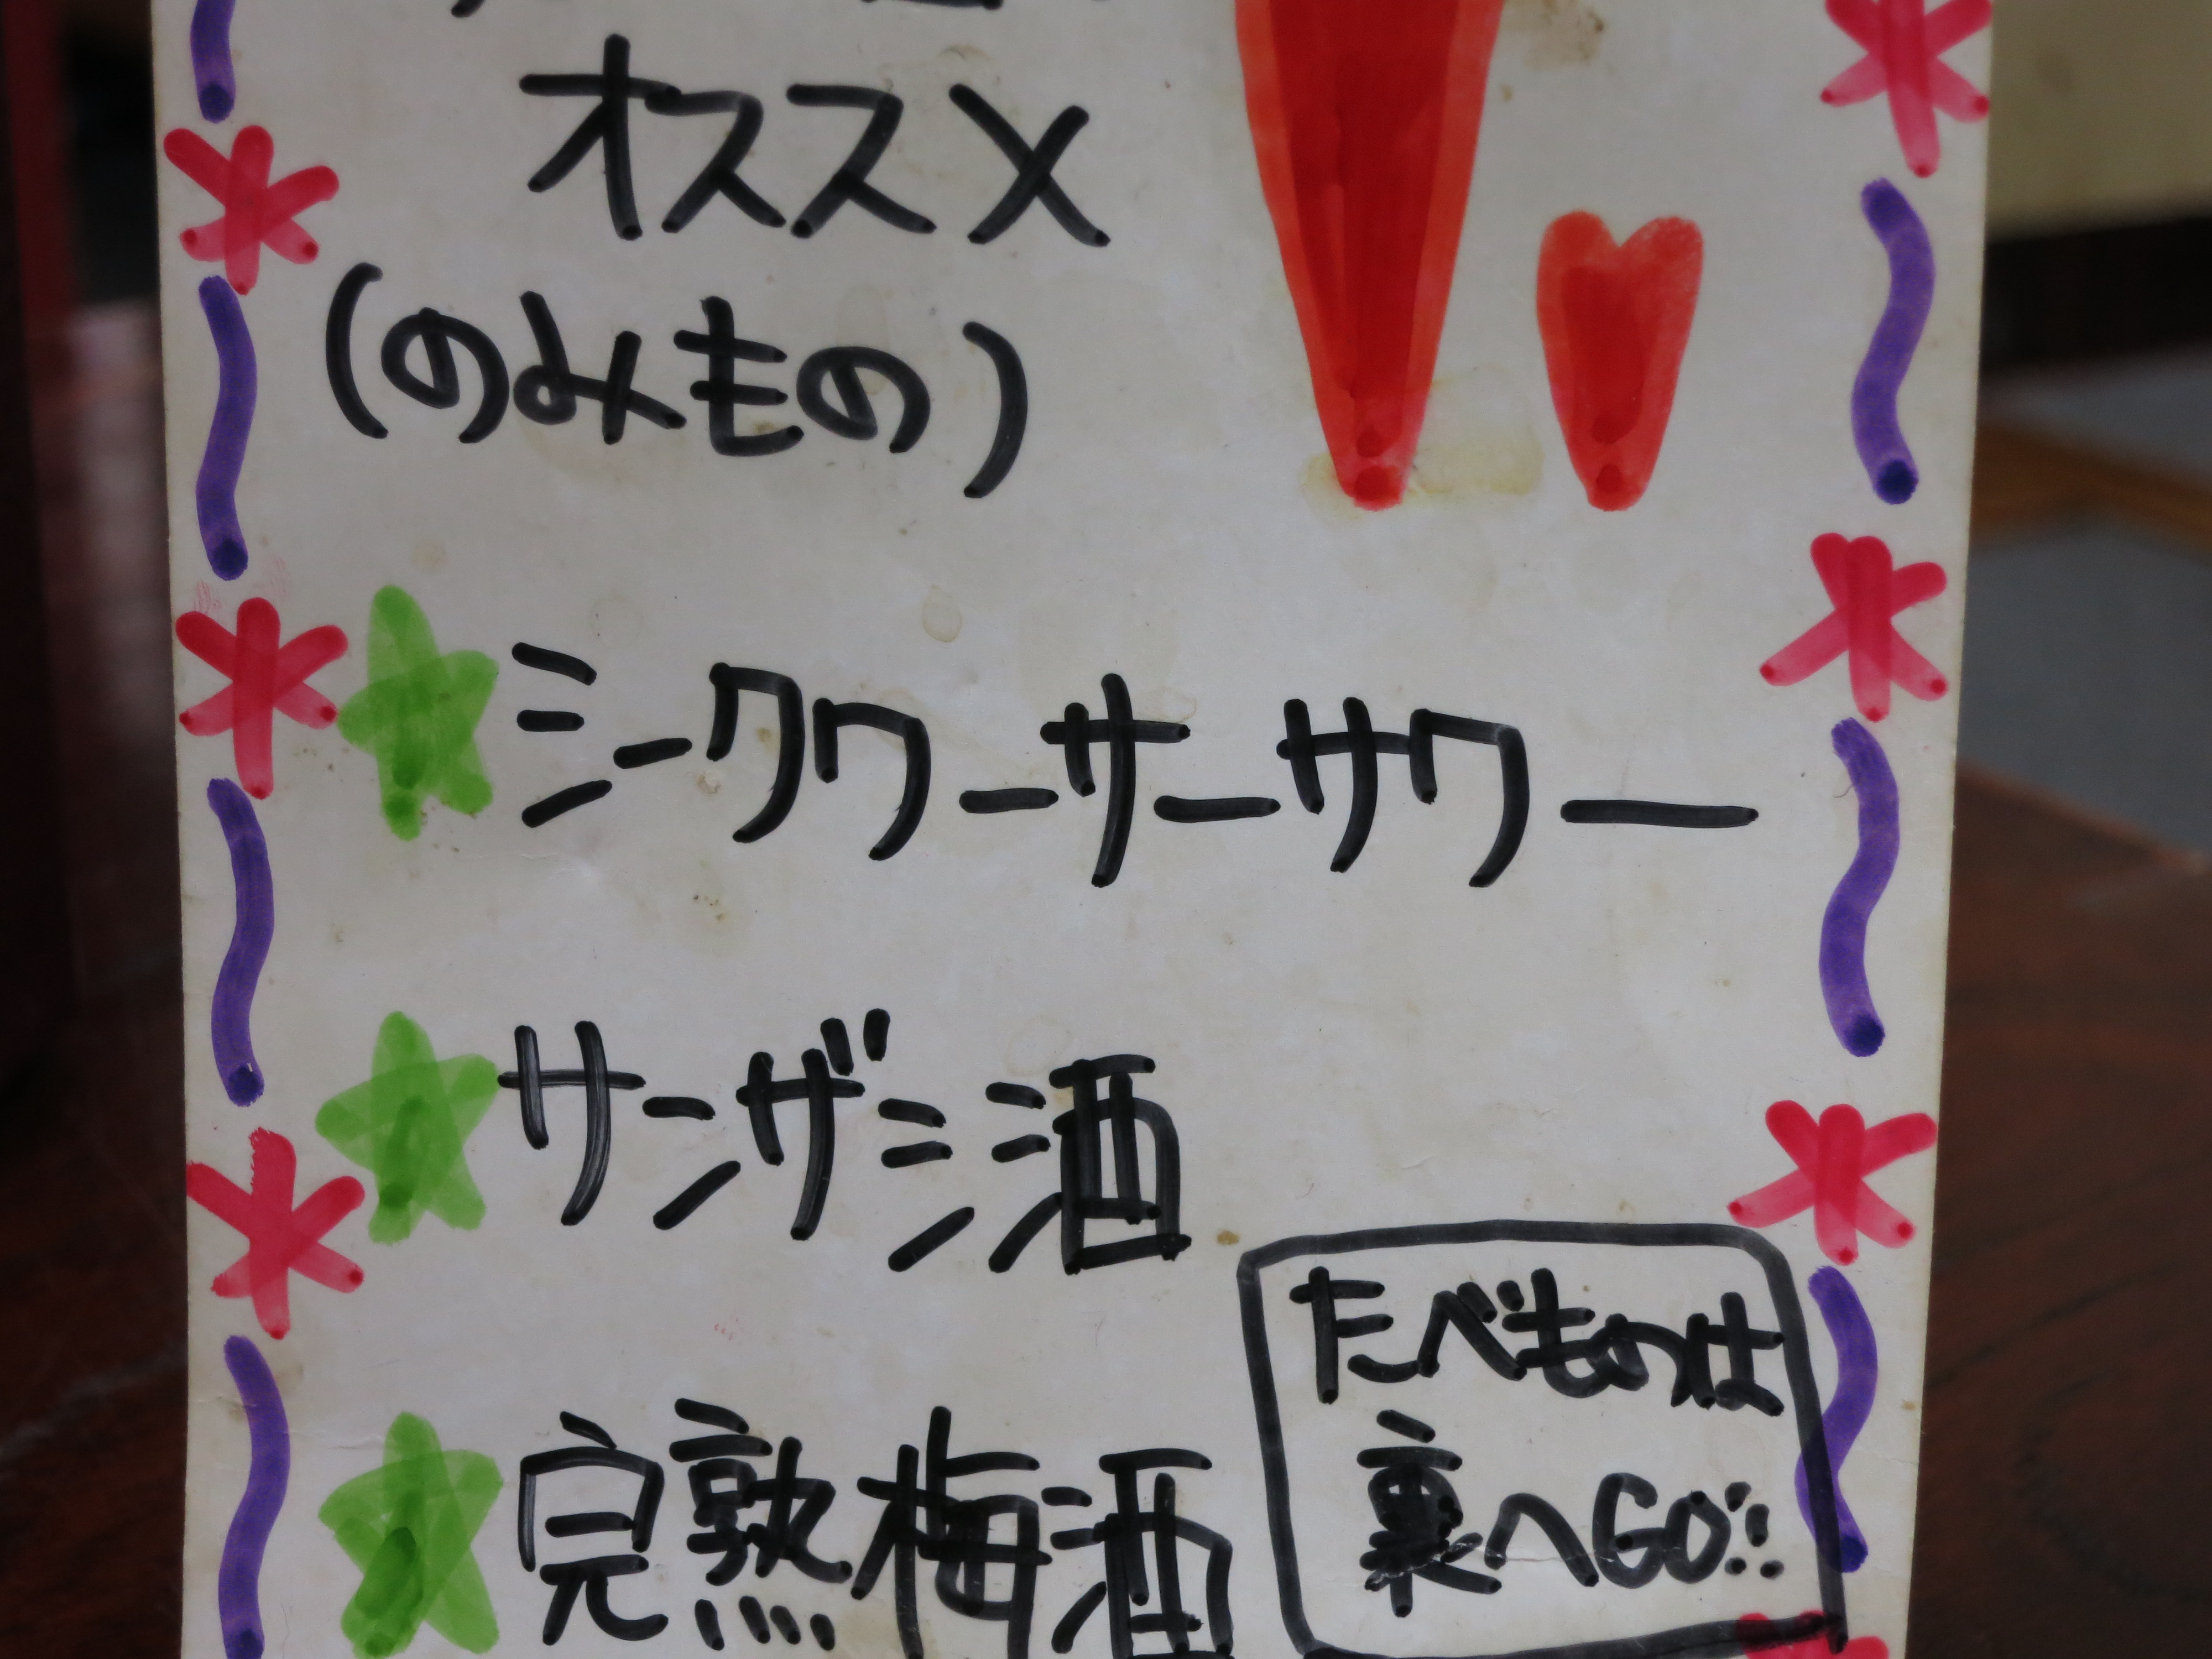 オススメ
(のみもの)
シークワーサーサワー
サンザシ酒
完熟梅酒
たべものは
裏へGO!!